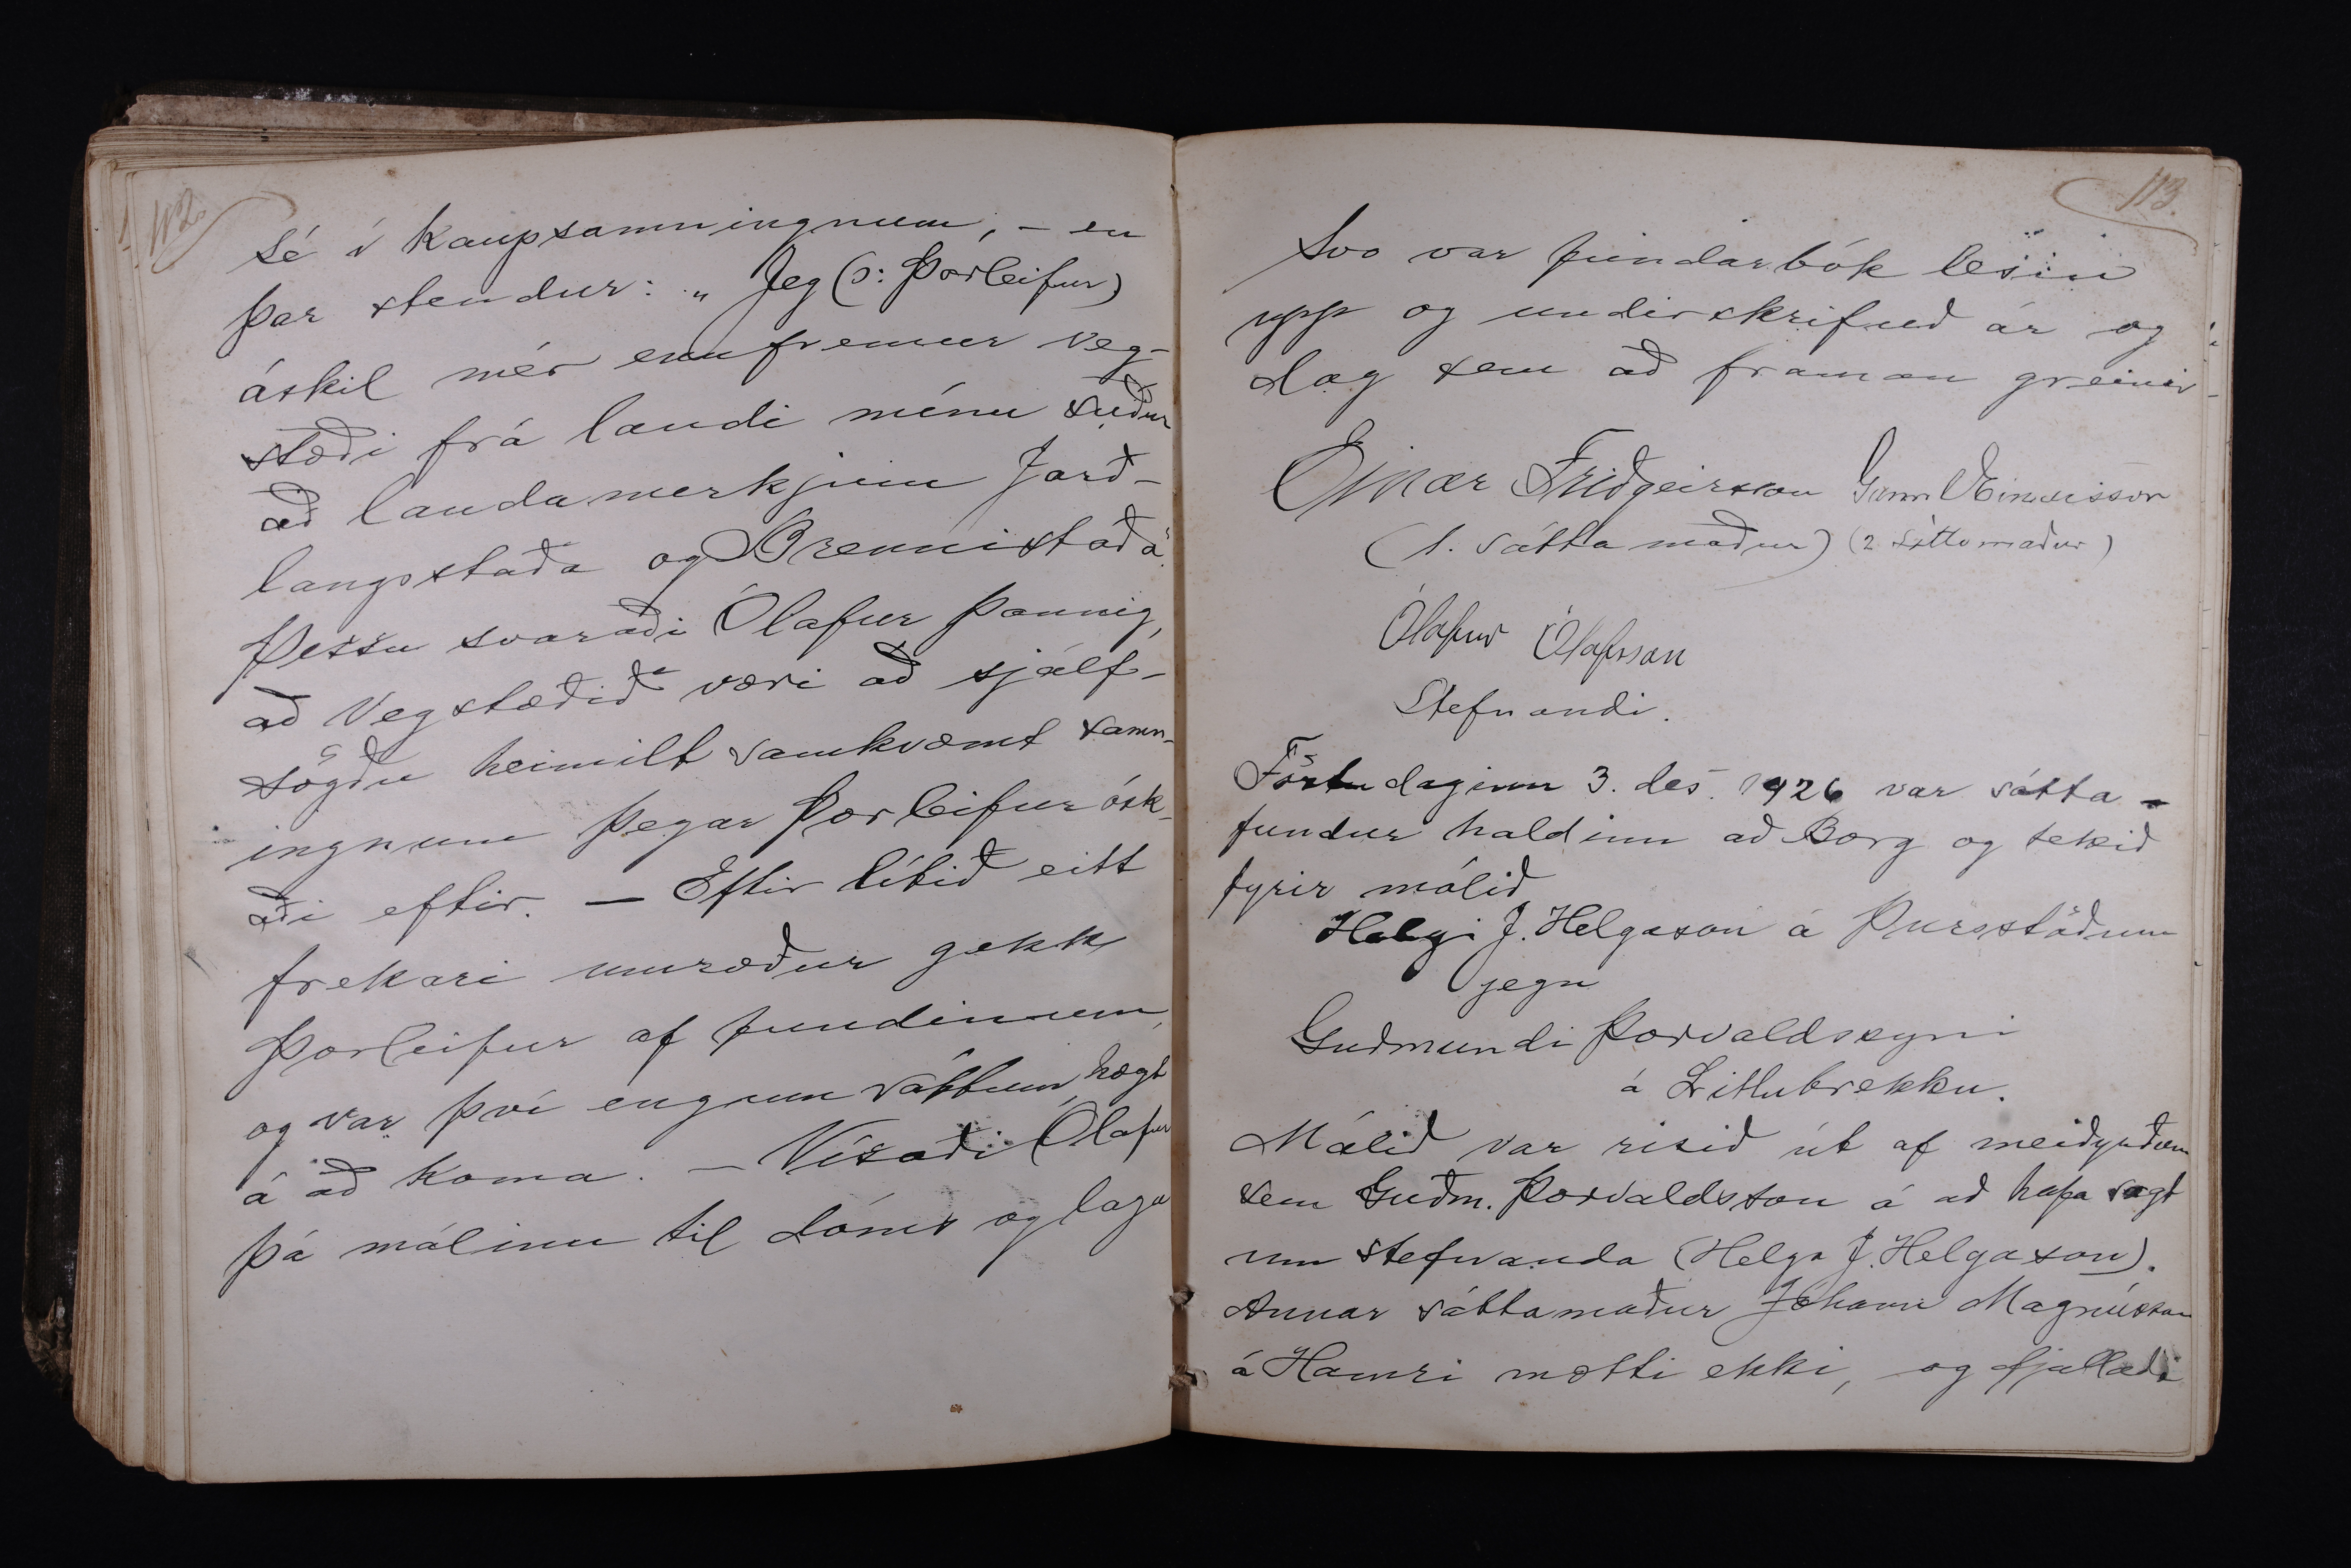 112
sé í kaupsamningnum, – en
þar stendur: „Jeg (ɔ: Þorleifur)
áskil mér ennfremur veg-
stæði frá landi mínu suður
að landamerkjum Jarð-
langsstaða og Brennistaða“.
Þessu svaraði Ólafur þannig,
að Vegstæðið væri að sjálf-
sögðu heimilt samkvæmt samn-
ingnum þegar Þorleifur ósk-
aði eftir. – Eftir lítið eitt
frekari umræður gekk
Þorleifur af fundinum,
og var því engum sáttum hægt
á að koma. – Vísaði Ólafur
þá málinu til dóms og laga
113.
Svo var fundarbók lesin
upp og undirskrifuð ár og
dag sem að framan greinir
Einar Friðgeirsson
(1. sáttamaður) (2 sáttamaður)
Ólafur Ólafsson
Stefnandi.
Föstudaginn 3. des. 1926 var sátta-
fundur haldinn að Borg og tekið
fyrir málið
Helgi J. Helgason á Þursstöðum
gegn
Guðmundi Þorvaldssyni
á Litlubrekku.
Málið var risið út af meiðyrðum
sem Guðm. Þorvaldsson á að hafa sagt
um stefnanda (Helga J. Helgason).
Annar sáttamaður Jóhann Magnússon
á Hamri mætti ekki, og fjallaði